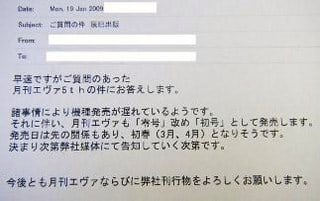 Date: Mon, 19 Jan 2009
Subject: ご質問の件 辰巳出版
From:
To:
早速ですがご質問のあった
月刊エヴァ5thの件にお答えします。
諸事情により機種発売が遅れているようです。
それに伴い、月刊エヴァも「零号」改め「初号」として発売します。
発売日は先の関係もあり、初春(3月、4月)となりそうです。
決まり次第弊社媒体にて告知していく次第です。
今後とも月刊エヴァならびに弊社刊行物をよろしくお願いします。